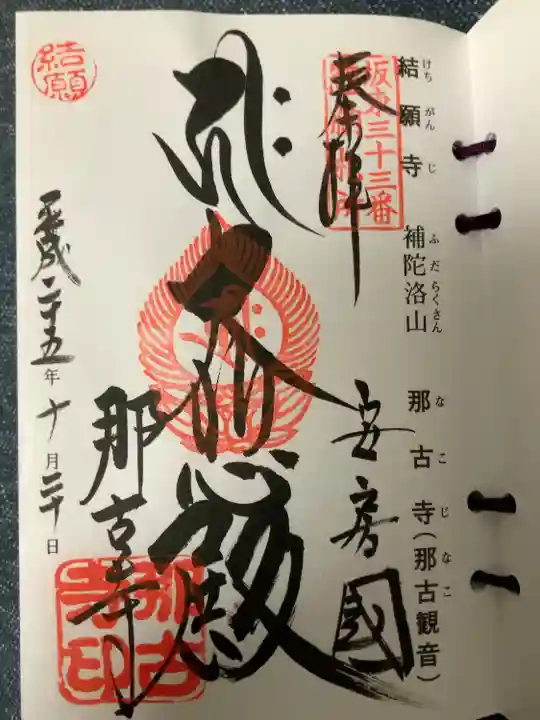 結願寺 補陀洛山 那古寺(那古観音)
けちがんじ ふだらくさん なこじ なこ
坂東三十三番
奉拝
安房國
大悲殿
那古寺
那古寺印
平成二十五年十月二十日
結願